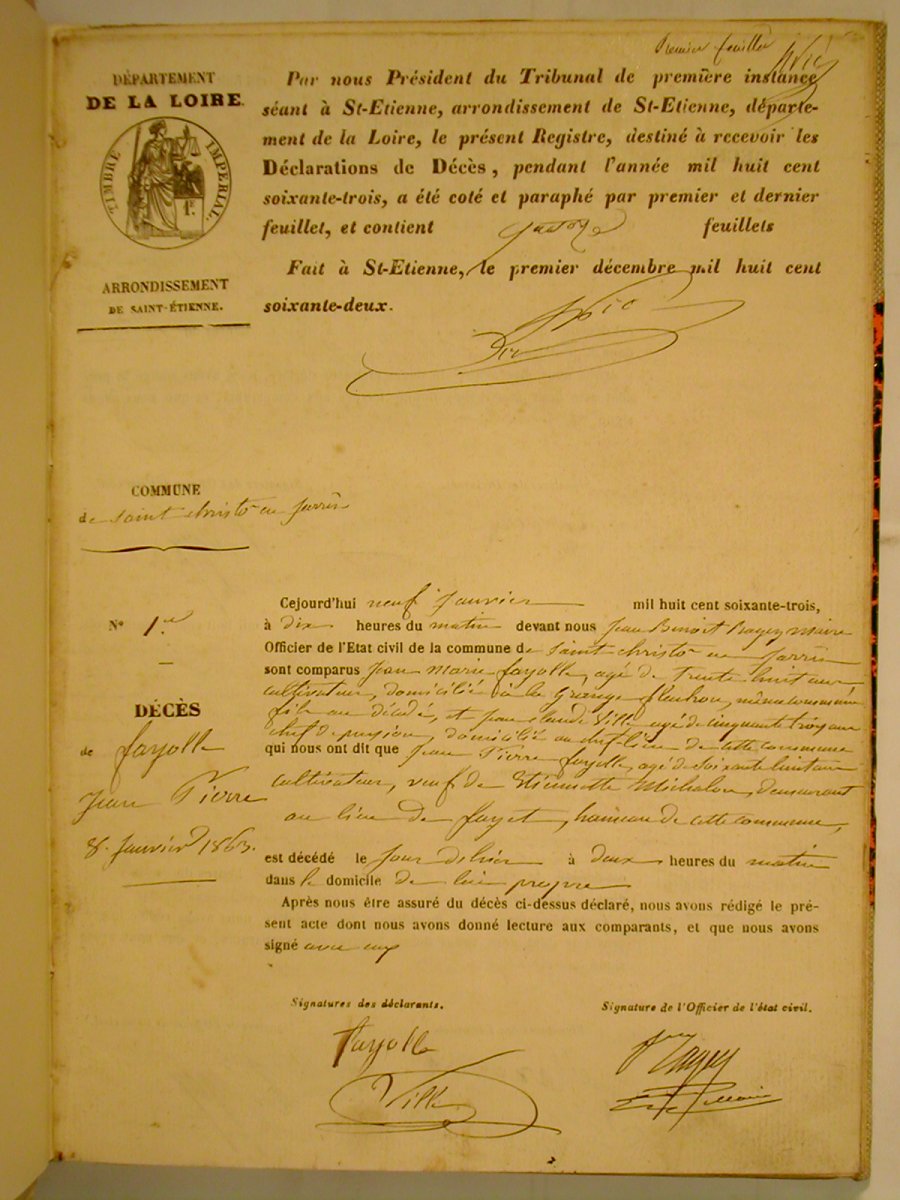 Premier feuillet
DÉPARTEMENT
DE LA LOIRE.
TIMBRE IMPÉRIAL.
1F.
ARRONDISSEMENT
DE SAINT-ÉTIENNE.
Par nous Président du Tribunal de première instance
séant à St-Etienne, arrondissement de St-Etienne, départe-
ment de la Loire, le présent Registre, destiné à recevoir les
Déclarations de Décès, pendant l'année mil huit cent
soixante-trois, a été coté et paraphé par premier et dernier
feuillet, et contient feuillets
Fait à St-Etienne, le premier décembre mil huit cent
soixante-deux.
COMMUNE
de Saint christo en Jarrês
N° 1er
DÉCÈS
de fayolle
Jean Pierre
8. Janvier 1863.
Cejourd'hui neuf Janvier mil huit cent soixante-trois,
à dix heures du matin devant nous Jean Benoit Ragey Maire
Officier de l'Etat civil de la commune de Saint christo en Jarrês
sont comparus Jean Marie fayolle, agé de trente huit ans
cultivateur, domicilié à la Grange, même commune
fils au décédé, et jean claude Ville agé de cinquante trois ans
chef de pension, domicilié au chef-lieu de cette commune
qui nous ont dit que Jean Pierre fayolle, agé de Soixante huit ans
cultivateur, veuf de Etiennette Michalon, demeurant
au lieu de fayet, hameau de cette commune,
est décédé le jour d'hier à deux heures du matin
dans le domicile de lui propre
Après nous être assuré du décès ci-dessus déclaré, nous avons rédigé le pré-
sent acte dont nous avons donné lecture aux comparants, et que nous avons
signé avec eux
Signatures des déclarants.
Signature de l'Officier de l'état civil.
fayolle
Ville
Ragey